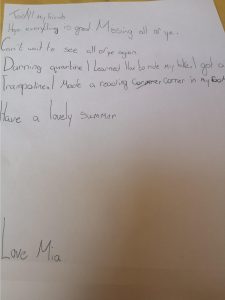 To all my friends
Hope everything is good. Missing all of ye.
Can't wait to see all of ye again.
Durning quarantine I learned How to ride my bike. I got a
Trampoline. I Made a reading corner in my Room
Have a lovely summer
Love Mia